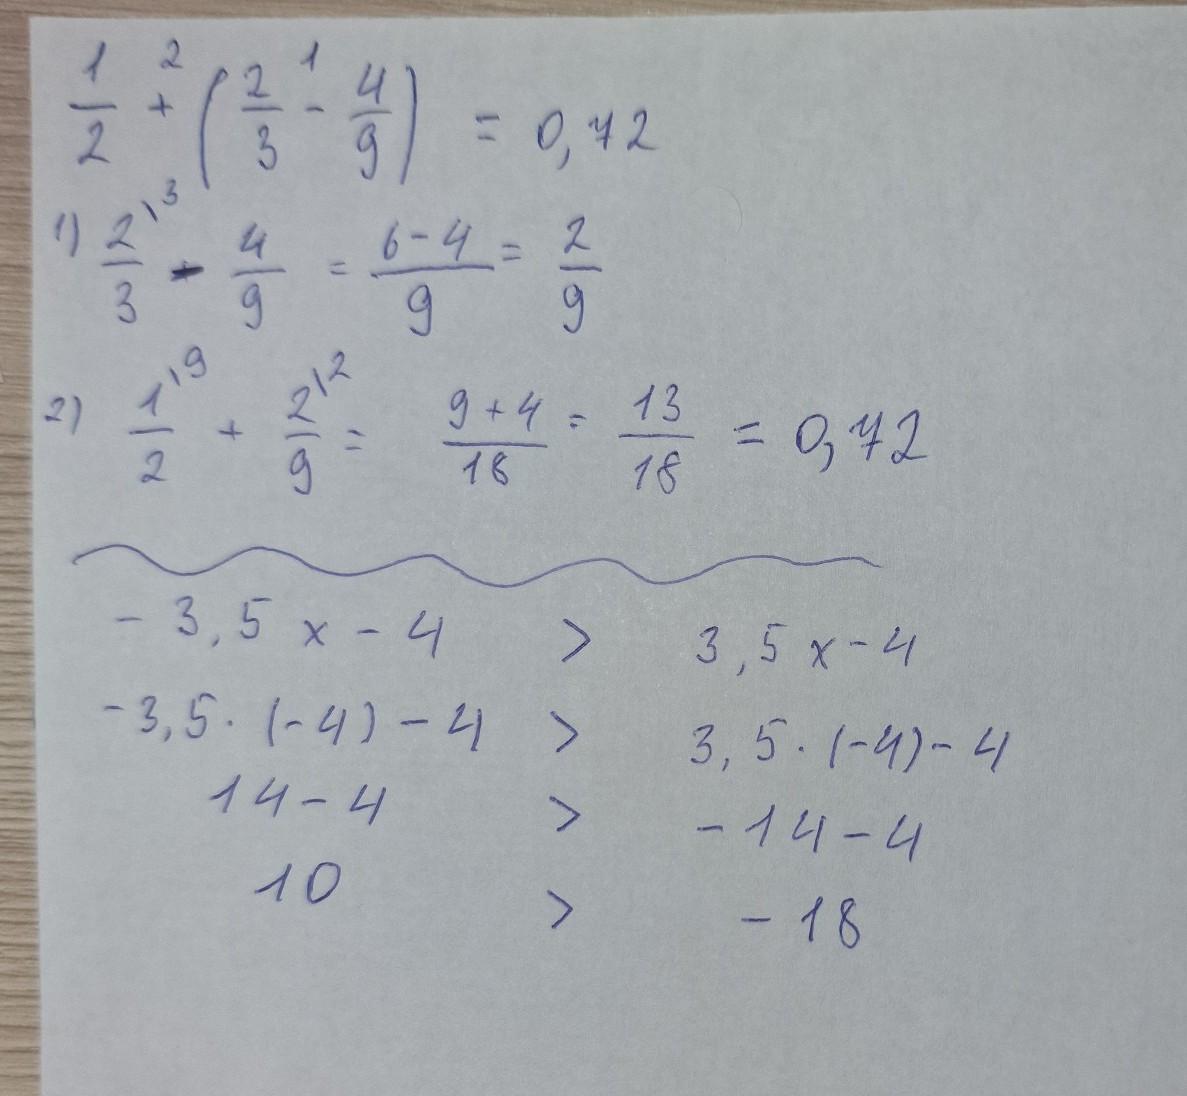 1/2 +² (2/3 -¹ 4/9) = 0,72
1) 2\³/3 - 4/9 = 6-4/9 = 2/9
2) 1\⁹/2 + 2\²/9 = 9+4/18 = 13/18 = 0,72
- 3,5 x - 4 > 3,5 x - 4
-3,5 · (-4) - 4 > 3,5 · (-4) - 4
14 - 4 > - 14 - 4
10 > - 18